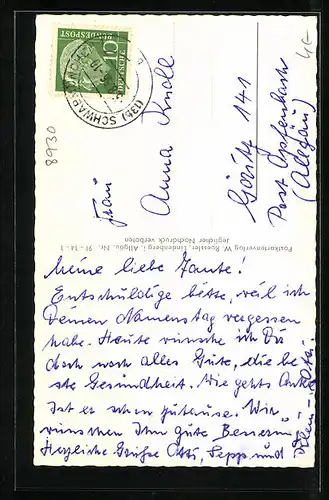 4€
8930
10
DEUTSCHE
BUNDESPOST
(13b) SCHWABMÜNCHEN
Frau
Anna Knoll
Görwitz 141
Post Opfenbach
(Allgäu)
Postkartenverlag W. Kessler, Lindenberg i. Allgäu. Nr. 91 - 14 - 1
Jeglicher Nachdruck verboten
Meine liebe Tante!
Entschuldige bitte, weil ich
Deinen Namenstag vergessen
habe. Heute wünsche ich Dir
doch noch alles Gute, die be
ste Gesundheit. Wie gehts
Ist er schon zuhause. Wir
wünschen Ihm gute Besserung
Herzliche Grüße Otti, Sepp und
Klein